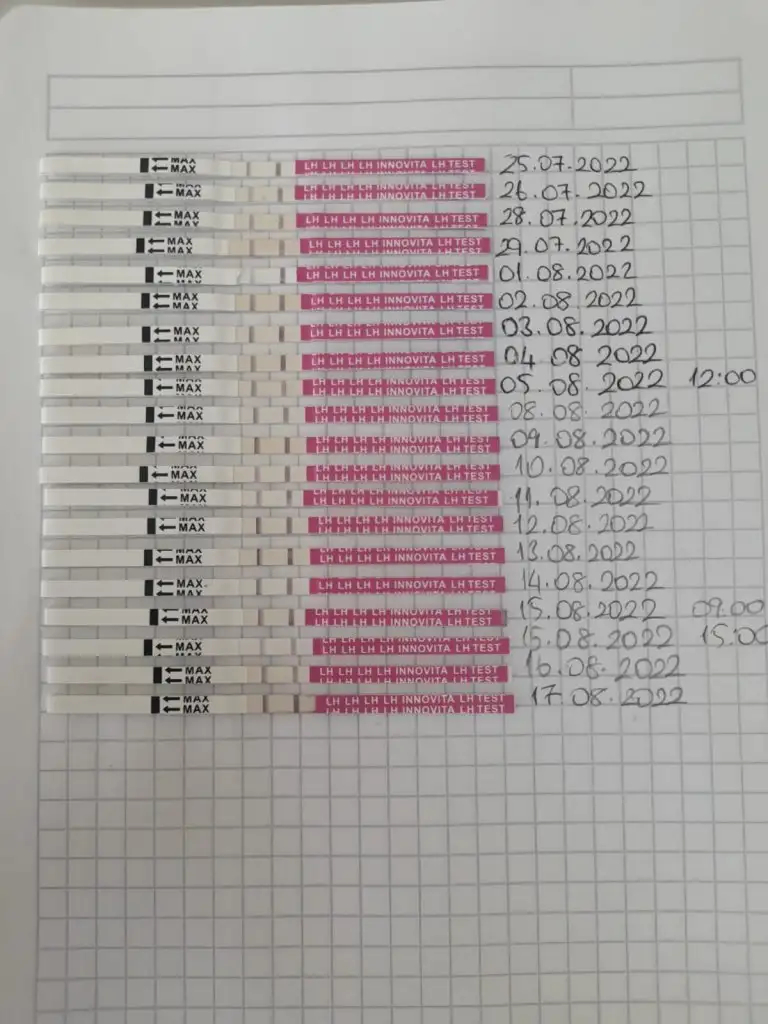 MAX MAX LH LH LH LH INNOVITA LH TEST 25.07.2022
MAX LH LH LH LH INNOVITA LH TEST 26.07.2022
MAX LH LH LH LH INNOVITA LH TEST 28.07.2022
MAX LH LH LH LH INNOVITA LH TEST 29.07.2022
MAX LH LH LH LH INNOVITA LH TEST 01.08.2022
MAX LH LH LH LH INNOVITA LH TEST 02.08.2022
MAX LH LH LH LH INNOVITA LH TEST 03.08.2022
MAX LH LH LH LH INNOVITA LH TEST 04.08 2022
MAX LH LH LH LH INNOVITA LH TEST 05.08.2022 12:00
MAX LH LH LH LH INNOVITA LH TEST 08.08.2022
MAX LH LH LH LH INNOVITA LH TEST 09.08.2022
MAX LH LH LH LH INNOVITA LH TEST 10.08.2022
MAX LH LH LH LH INNOVITA LH TEST 11.08.2022
MAX LH LH LH LH INNOVITA LH TEST 12.08.2022
MAX LH LH LH LH INNOVITA LH TEST 13.08.2022
MAX LH LH LH LH INNOVITA LH TEST 14.08.2022
MAX LH LH LH LH INNOVITA LH TEST 15.08.2022 09.00
MAX LH LH LH LH INNOVITA LH TEST 15.08.2022 15:00
MAX MAX LH LH LH LH INNOVITA LH TEST 16.08.2022
MAX MAX LH LH LH LH INNOVITA LH TEST 17.08.2022